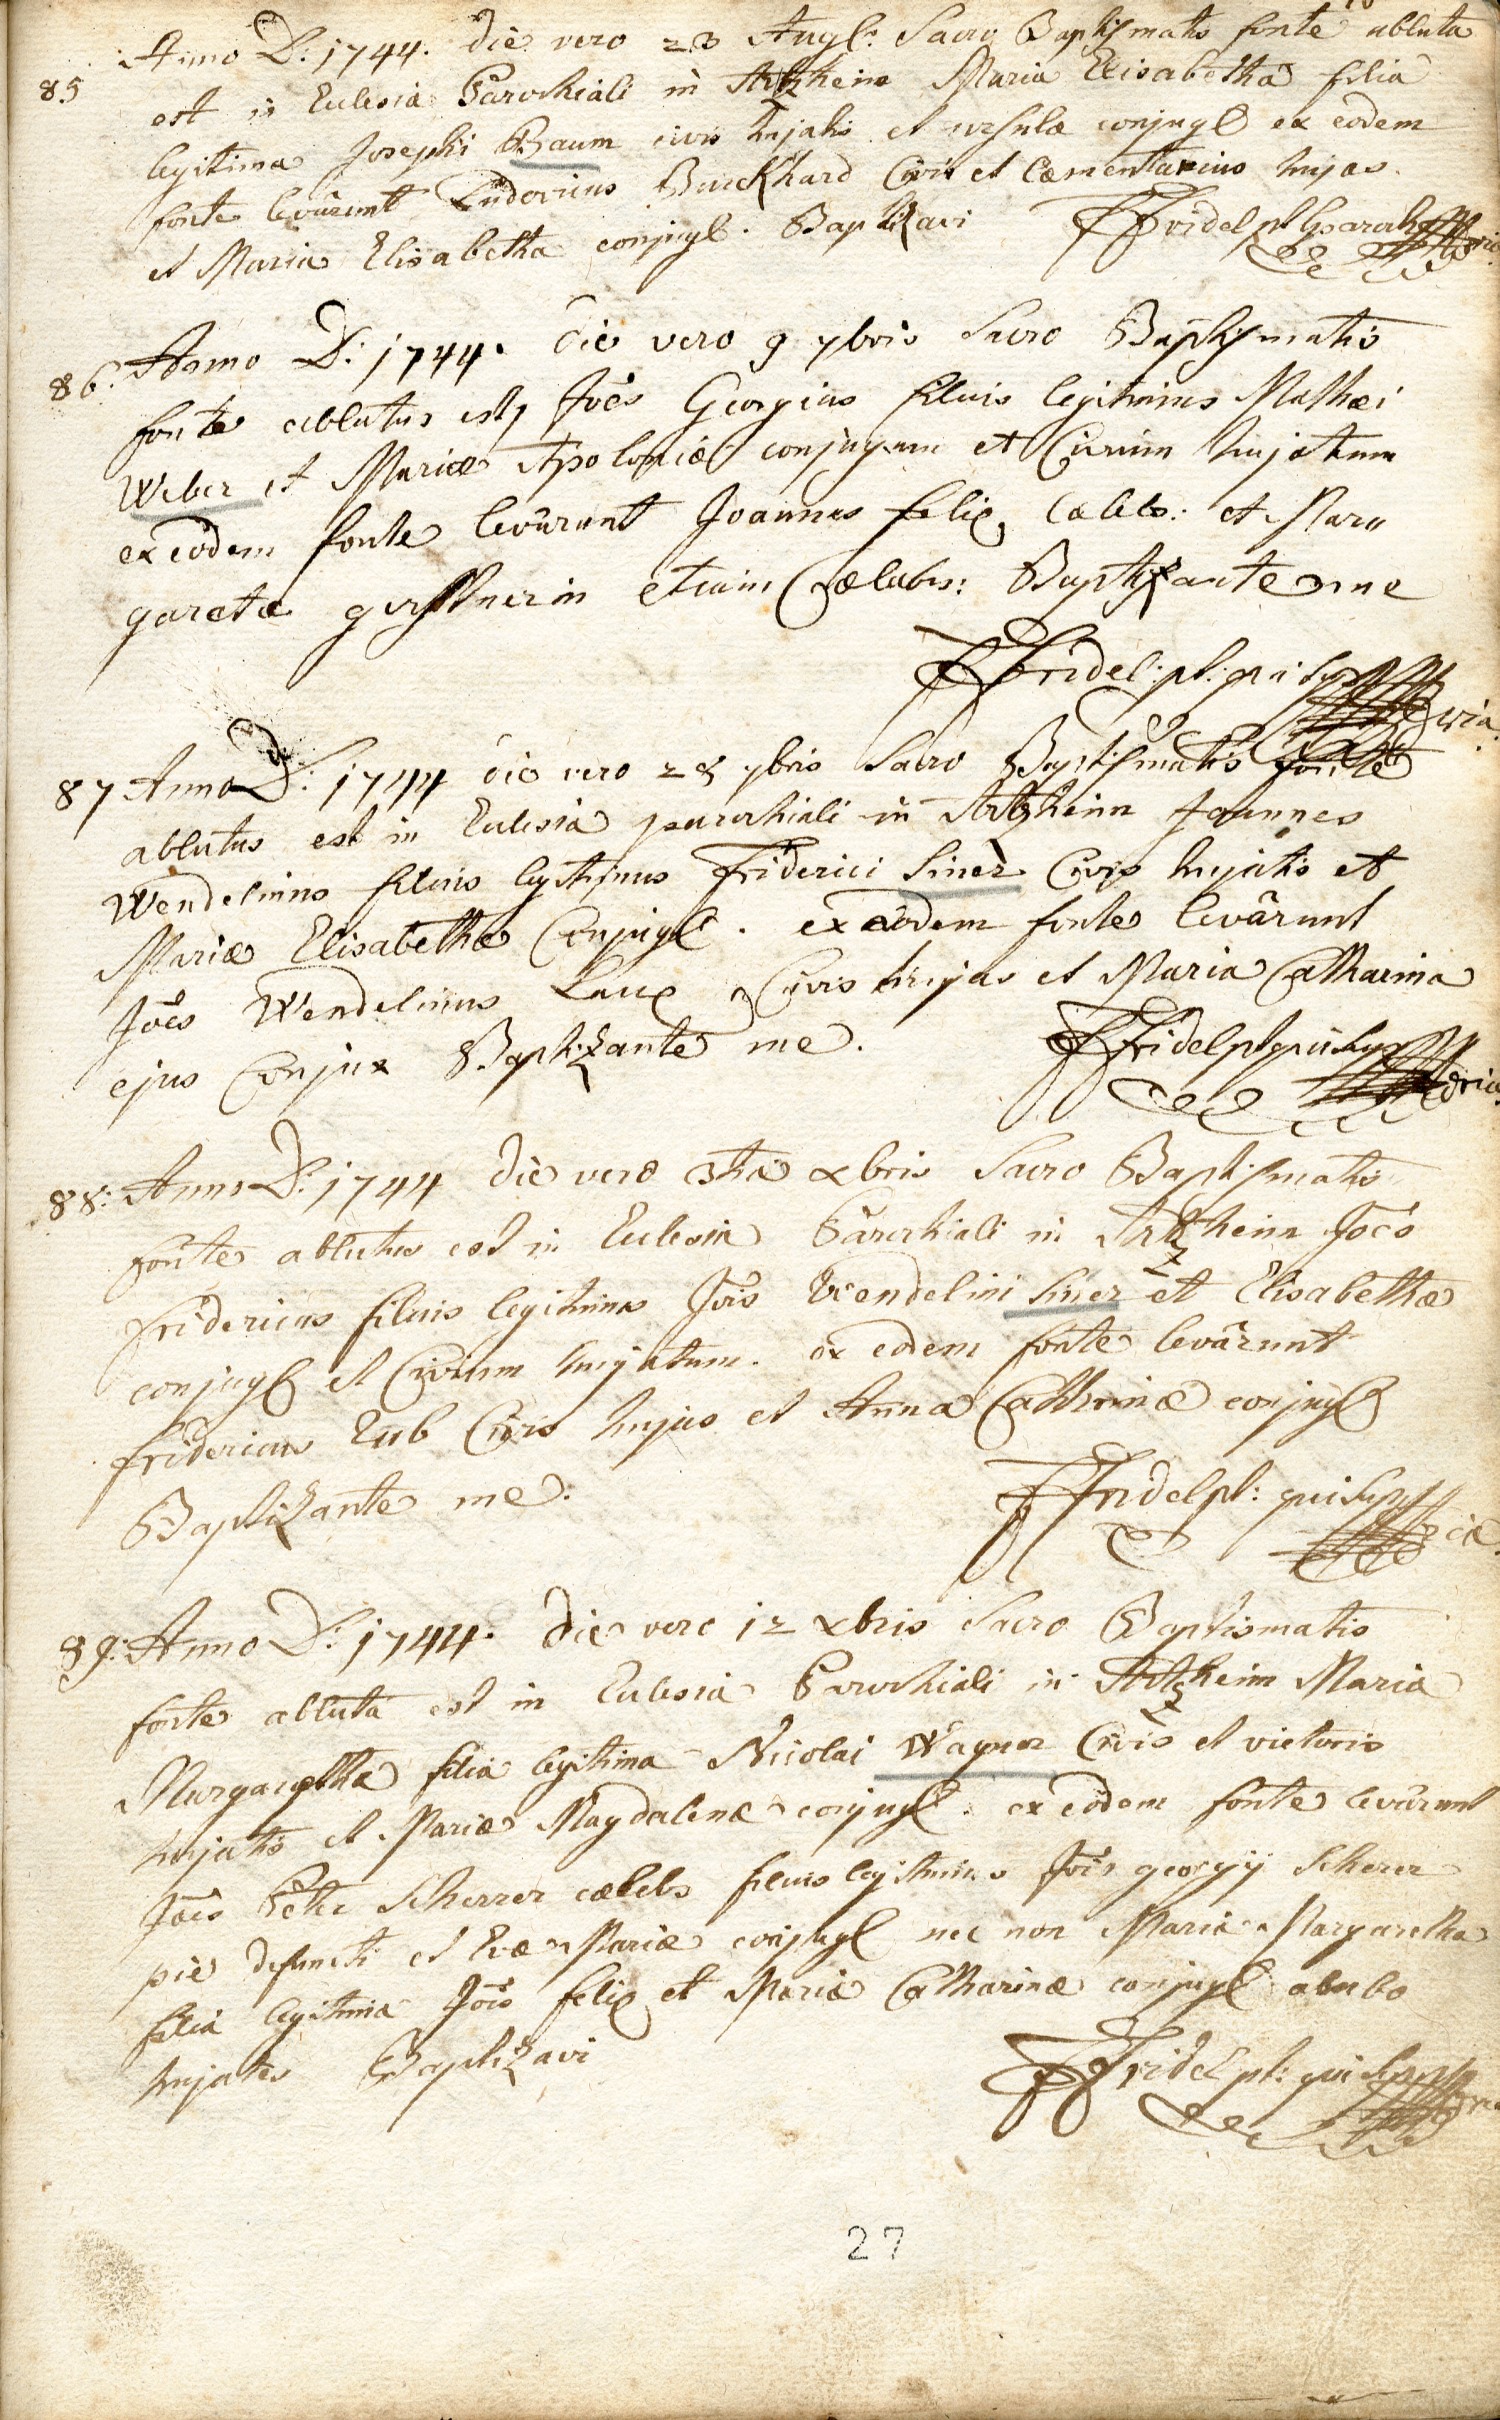 85 Anno D: 1744. die vero 23 Augl: Sacro Baptismatis fonte abluta
est in Eclesia Parochiali in Artzheim Maria Elisabetha filia
legitima Josephi Baum civis hujatis et ursulæ conjugl ex eodem
fonte levârunt Ludovicus Burckhard Civis et Cæmentarius hujas.
et Maria Elisabetha conjugl. Baptizavi FFridel pl
86. Anno D: 1744. die vero 9 7bris Sacro Baptismatis
fonte ablutus est, Joẽs Georgius filius legitimus Mathæi
Weber et Mariæ Apoloniæ conjugum et Civium hujatum
ex eodem fonte levârunt Joannes felix, Cælebs: et Mar
gareta gerstnerin etiam Cælebs: Baptizante me
FFridel: pl:
87 Anno D: 1744 die vero 28 7bris Sacro Baptismatis fonte
ablutus est in Eclesia parochiali in Artzheim Joannes
Wendelinus filius legitimus Friderici Siner Civis hujatis et
Mariæ Elisabethæ Conjugl. ex eodem fonte levârunt
Joẽs Wendelinus Laux, Civis hujas et Maria Catharina
ejus Conjux Baptizante me. FFridel pl
88: Anno D: 1744 die vero 3tia xbris Sacro Baptismatis
fonte ablutus est in Eclesia Parochiali in Artzheim Joẽs
Fridericus filius legitimus Jõis Wendelini Siner et Elisabethæ
conjugl et Civium hujatum. ex eodem fonte levârunt
fridericus Civis hujas et Anna Catharinæ conjugl
Baptizante me. FFridel pl:
89: Anno D: 1744. die vero 12 xbris Sacro Baptismatis
fonte abluta est in Eclesia Parochiali in Artzheim Maria
Margaretha filia legitima Nicolai Wagner Civis et vietoris
hujatis et Mariæ Magdalenæ conjugl. ex eodem fonte levârunt
Joẽs Peter Scherrer cælebs filius legitimus Jõis georgij Scherer
pie defuncti et Evæ Mariæ conjugl nec non Maria Margaretha
filia legitima Jõis felix et Mariæ Catharinæ conjugl ambo
hujates Baptizavi FFridel pl:
27